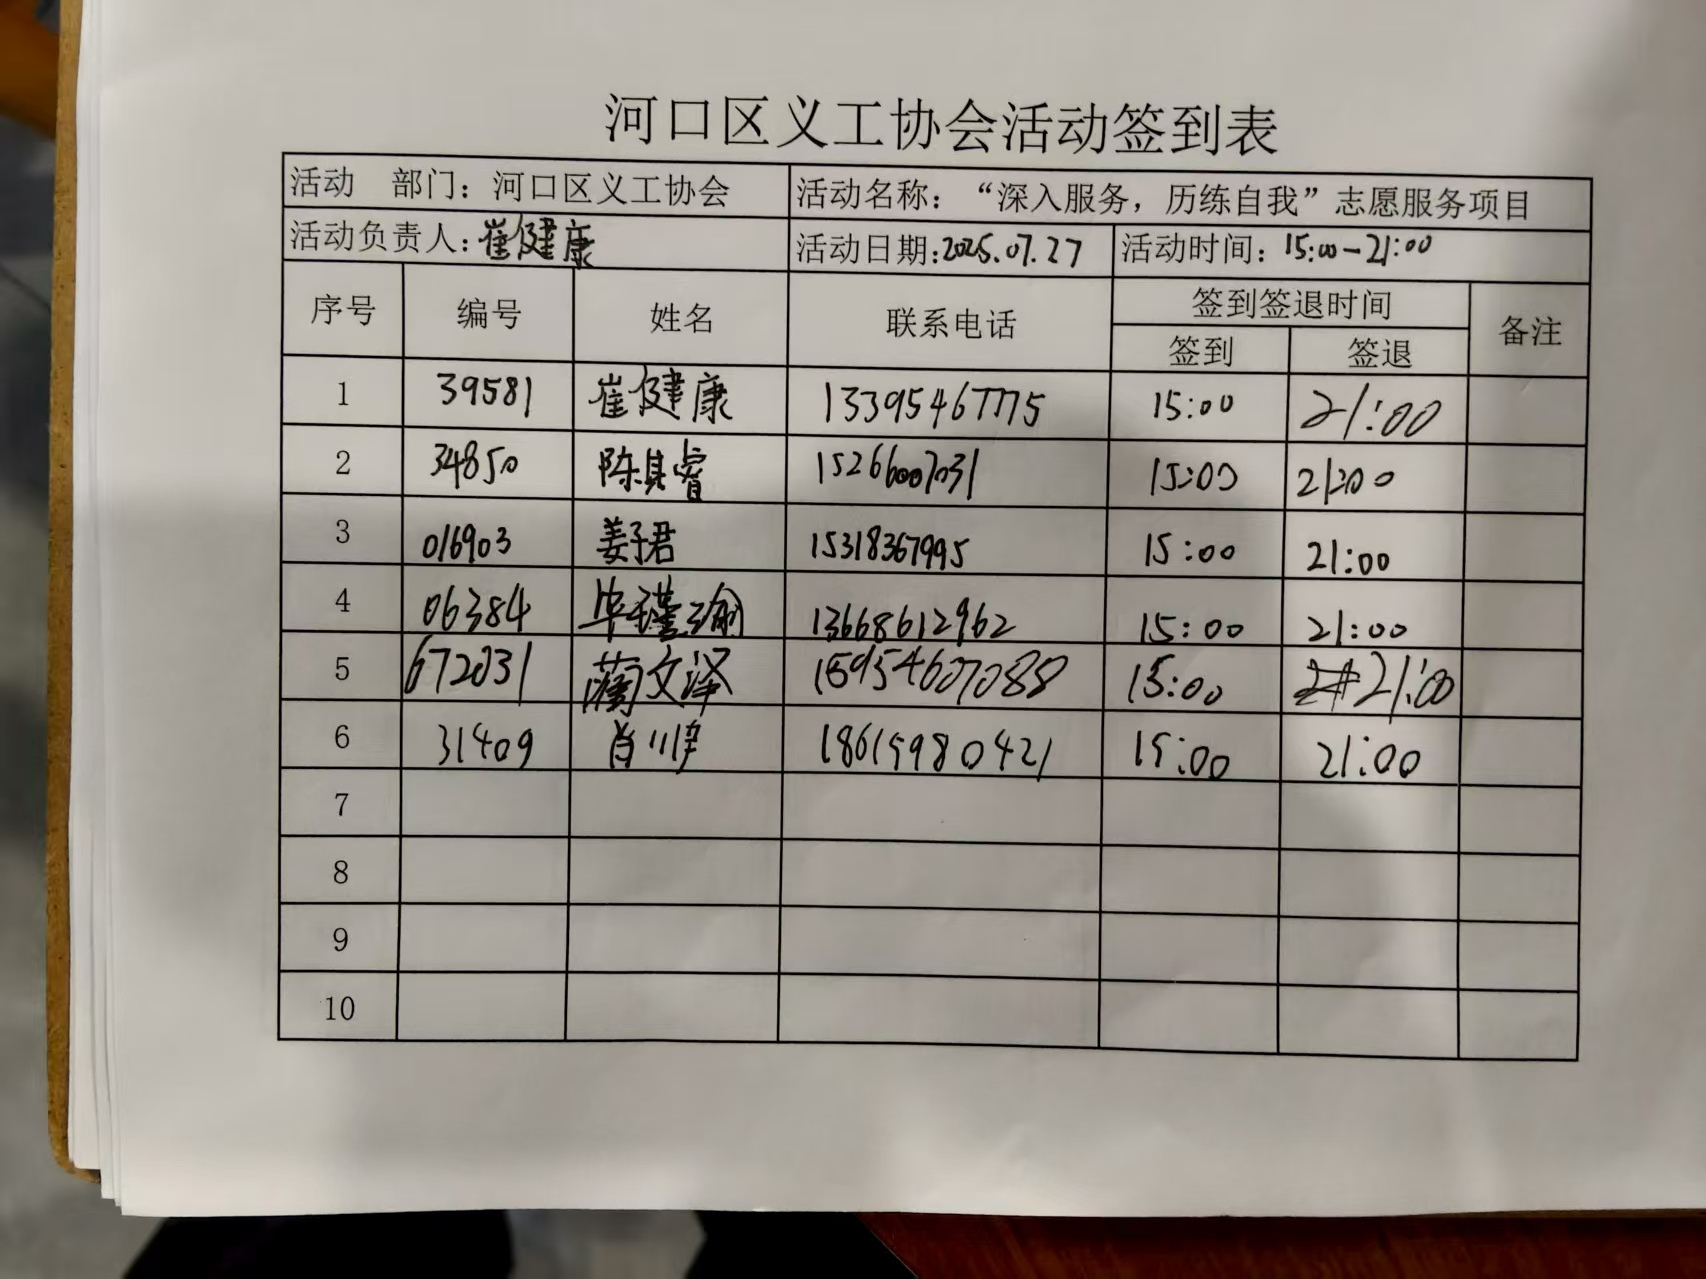 河口区义工协会活动签到表
活动 部门：河口区义工协会 活动名称：“深入服务，历练自我”志愿服务项目
活动负责人：崔健康 活动日期：2025.07.27 活动时间：15:00-21:00
序号 编号 姓名 联系电话 签到签退时间 备注
签到 签退
1 39581 崔健康 13395467775 15:00 21:00
2 34850 陈其睿 15266007031 15:00 21:00
3 016903 姜子君 15318367995 15:00 21:00
4 06384 毕瑾瑜 13668612962 15:00 21:00
5 672031 文泽 15954607088 15:00 21:00
6 31409 肖 18615980421 15:00 21:00
7
8
9
10